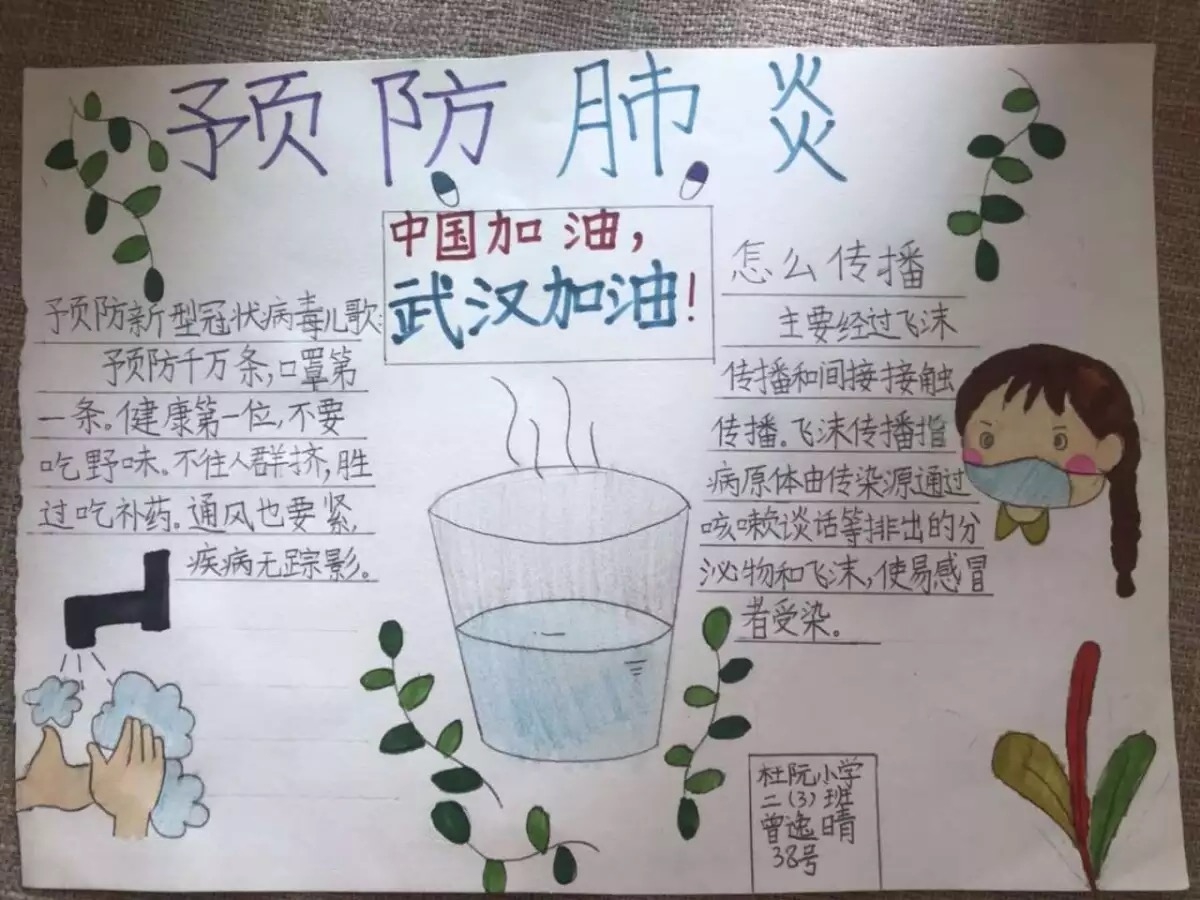 预防肺炎
中国加油，
武汉加油！
预防新型冠状病毒儿歌:
预防千万条，口罩第
一条。健康第一位，不要
吃野味。不往人群挤，胜
过吃补药。通风也要紧，
疾病无踪影。
怎么传播
主要经过飞沫
传播和间接接触
传播。飞沫传播指
病原体由传染源通过
咳嗽谈话等排出的分
泌物和飞沫，使易感冒
者受染。
杜阮小学
二（3）班
曾逸晴
38号